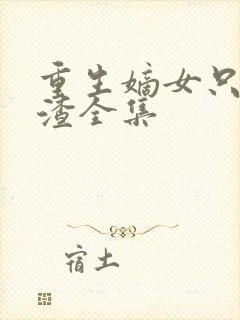 重生嫡女只
渣全集
宿土